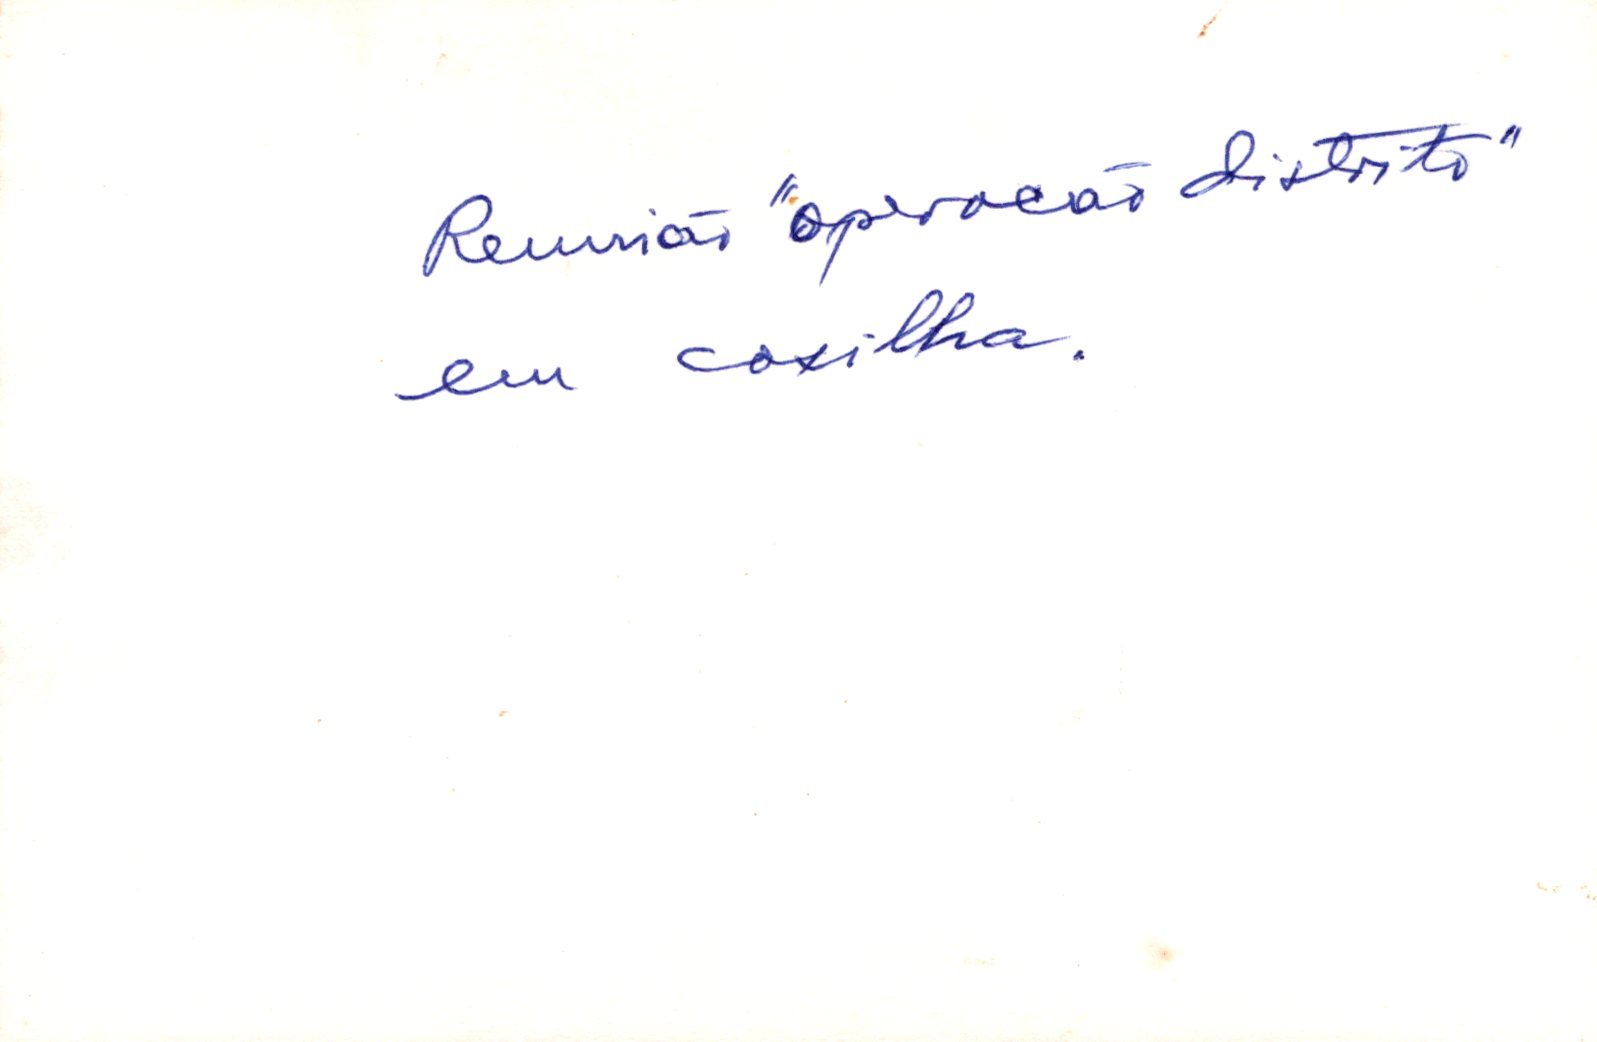 Reunião "operacão distrito"
em coxilha.